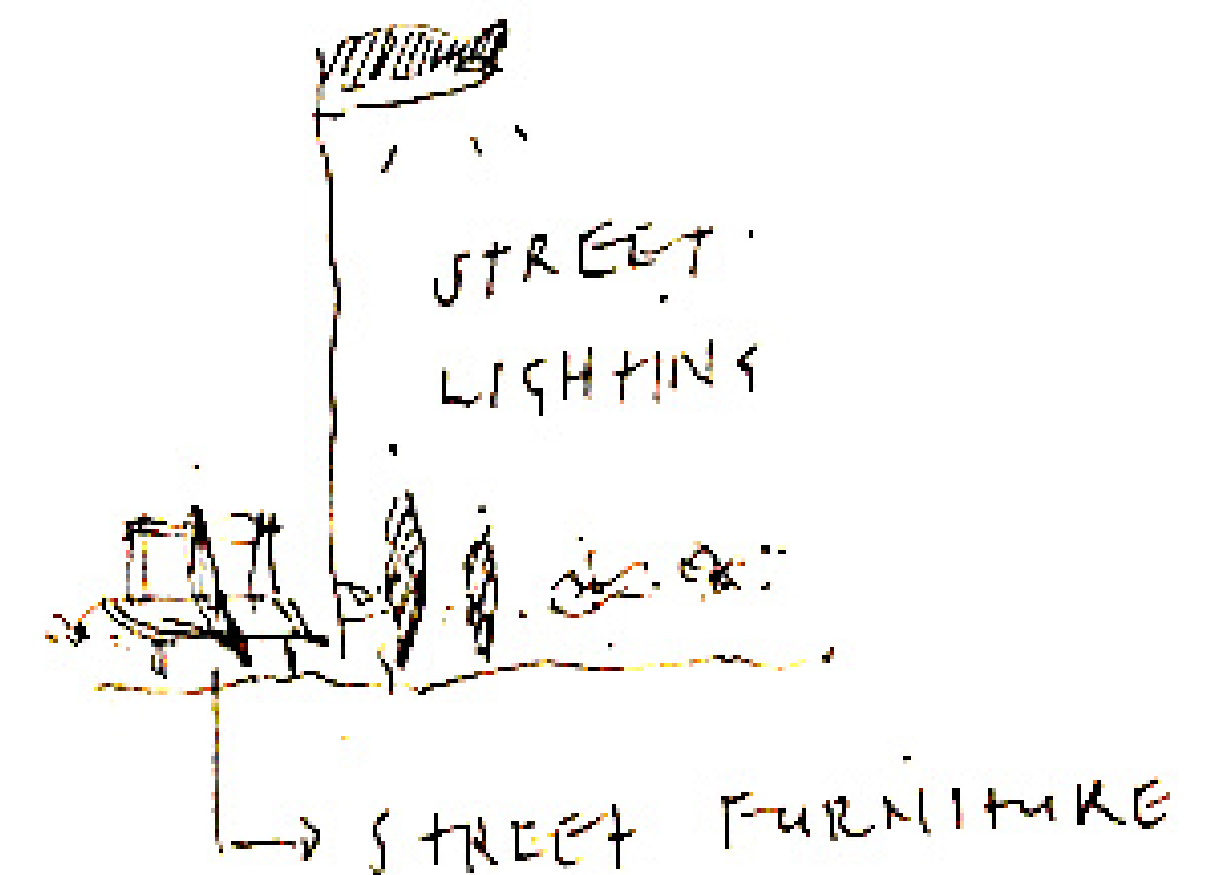 STREET
LIGHTING
STREET FURNITURE